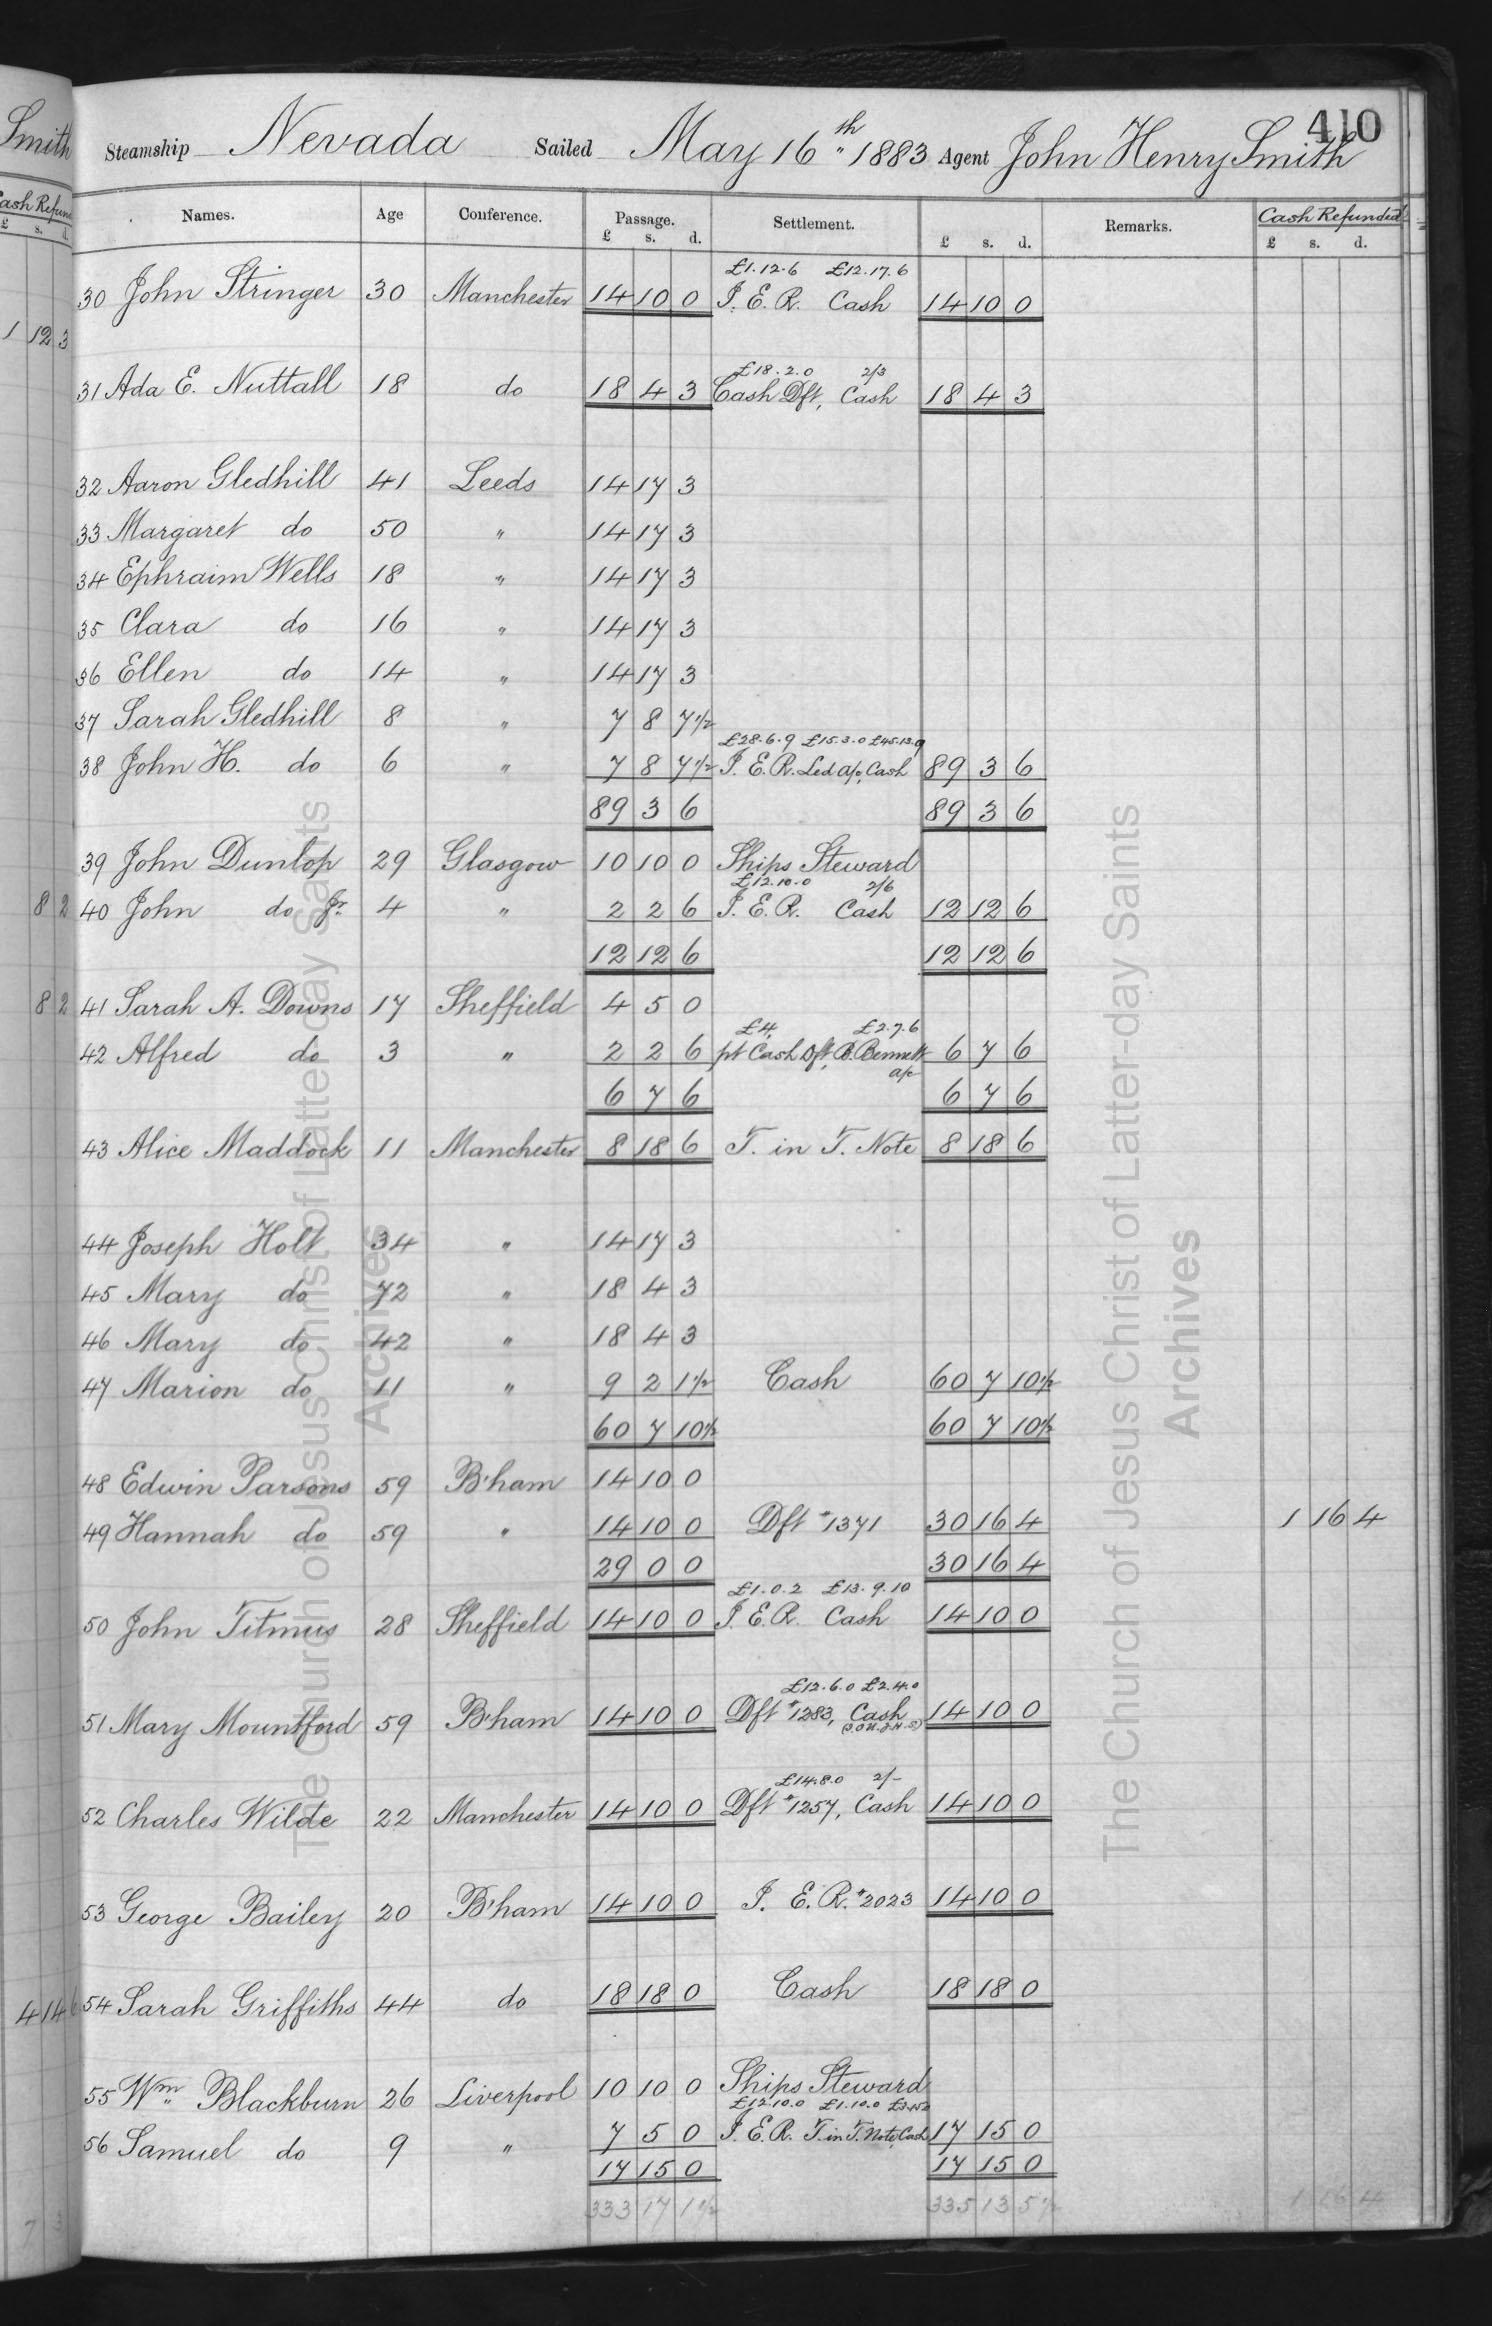 410
Steamship Nevada Sailed May 16th 1883 Agent John Henry Smith
Names. Age Conference. Passage. £ s. d. Settlement. £ s. d. Remarks. Cash Refunded £ s. d.
£1.12.6 £12.17.6
30 John Stringer 30 Manchester 14 10 0 I. E. R. Cash 14 10 0
£18.2.0 2/3
31 Ada E. Nuttall 18 do 18 4 3 Cash Dft, Cash 18 4 3
32 Aaron Gledhill 41 Leeds 14 17 3
33 Margaret do 50 " 14 17 3
34 Ephraim Wells 18 " 14 17 3
35 Clara do 16 " 14 17 3
36 Ellen do 14 " 14 17 3
37 Sarah Gledhill 8 " 7 8 7½
£28.6.9 £15.3.0 £45.13.9
38 John H. do 6 " 7 8 7½ I. E. R. Led a/c, Cash 89 3 6
89 3 6 89 3 6
39 John Dunlop 29 Glasgow 10 10 0 Ships Steward
£12.10.0 2/6
40 John do Jr. 4 " 2 2 6 I. E. R. Cash 12 12 6
12 12 6 12 12 6
41 Sarah A. Downs 17 Sheffield 4 5 0
£4, £2.7.6
42 Alfred do 3 " 2 2 6 pt Cash Dft, B. Bennett a/c 6 7 6
6 7 6 6 7 6
43 Alice Maddock 11 Manchester 8 18 6 T. in T. Note 8 18 6
44 Joseph Holt 34 " 14 17 3
45 Mary do 72 " 18 4 3
46 Mary do 42 " 18 4 3
47 Marion do 11 " 9 2 1½ Cash 60 7 10½
60 7 10½ 60 7 10½
48 Edwin Parsons 59 B'ham 14 10 0
49 Hannah do 59 " 14 10 0 Dft #1371 30 16 4 1 16 4
29 0 0 30 16 4
£1.0.2 £13.9.10
50 John Titmus 28 Sheffield 14 10 0 I. E. R. Cash 14 10 0
£12.6.0 £2.4.0
51 Mary Mountford 59 B'ham 14 10 0 Dft #1283, Cash 14 10 0
£14.8.0 2/-
52 Charles Wilde 22 Manchester 14 10 0 Dft #1257, Cash 14 10 0
53 George Bailey 20 B'ham 14 10 0 I. E. R. #2023 14 10 0
54 Sarah Griffiths 44 do 18 18 0 Cash 18 18 0
55 Wm Blackburn 26 Liverpool 10 10 0 Ships Steward
£12.10.0 £1.10.0
56 Samuel do 9 " 7 5 0 I. E. R. T. in T. Note, Cash 17 15 0
17 15 0 17 15 0
333 17 1½ 335 13 5½ 1 16 4
Smith
Cash Refund
£ s. d.
1 12 3
8 2
8 2
4 14 6
7 3
The Church of Jesus Christ of Latter-day Saints
Archives
The Church of Jesus Christ of Latter-day Saints
Archives